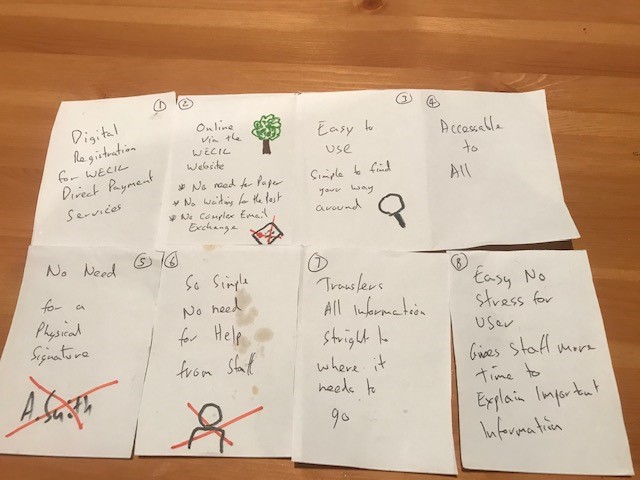 ①
Digital
Registration
for WECIL
Direct Payment
Services
②
Online
via the
WECIL
Website
* No need for Paper
* No Waiting for the Post
* No Complex Email
Exchange
③
Easy to
use
Simple to find
your way
around
④
Accessable
to
All
⑤
No Need
for a
Physical
Signature
A. Smith
⑥
So Simple
No need
for Help
from Staff
⑦
Transfers
All Information
Stright to
where it
needs to
go
⑧
Easy No
Stress for
User
Gives Staff more
Time to
Explain Important
Information